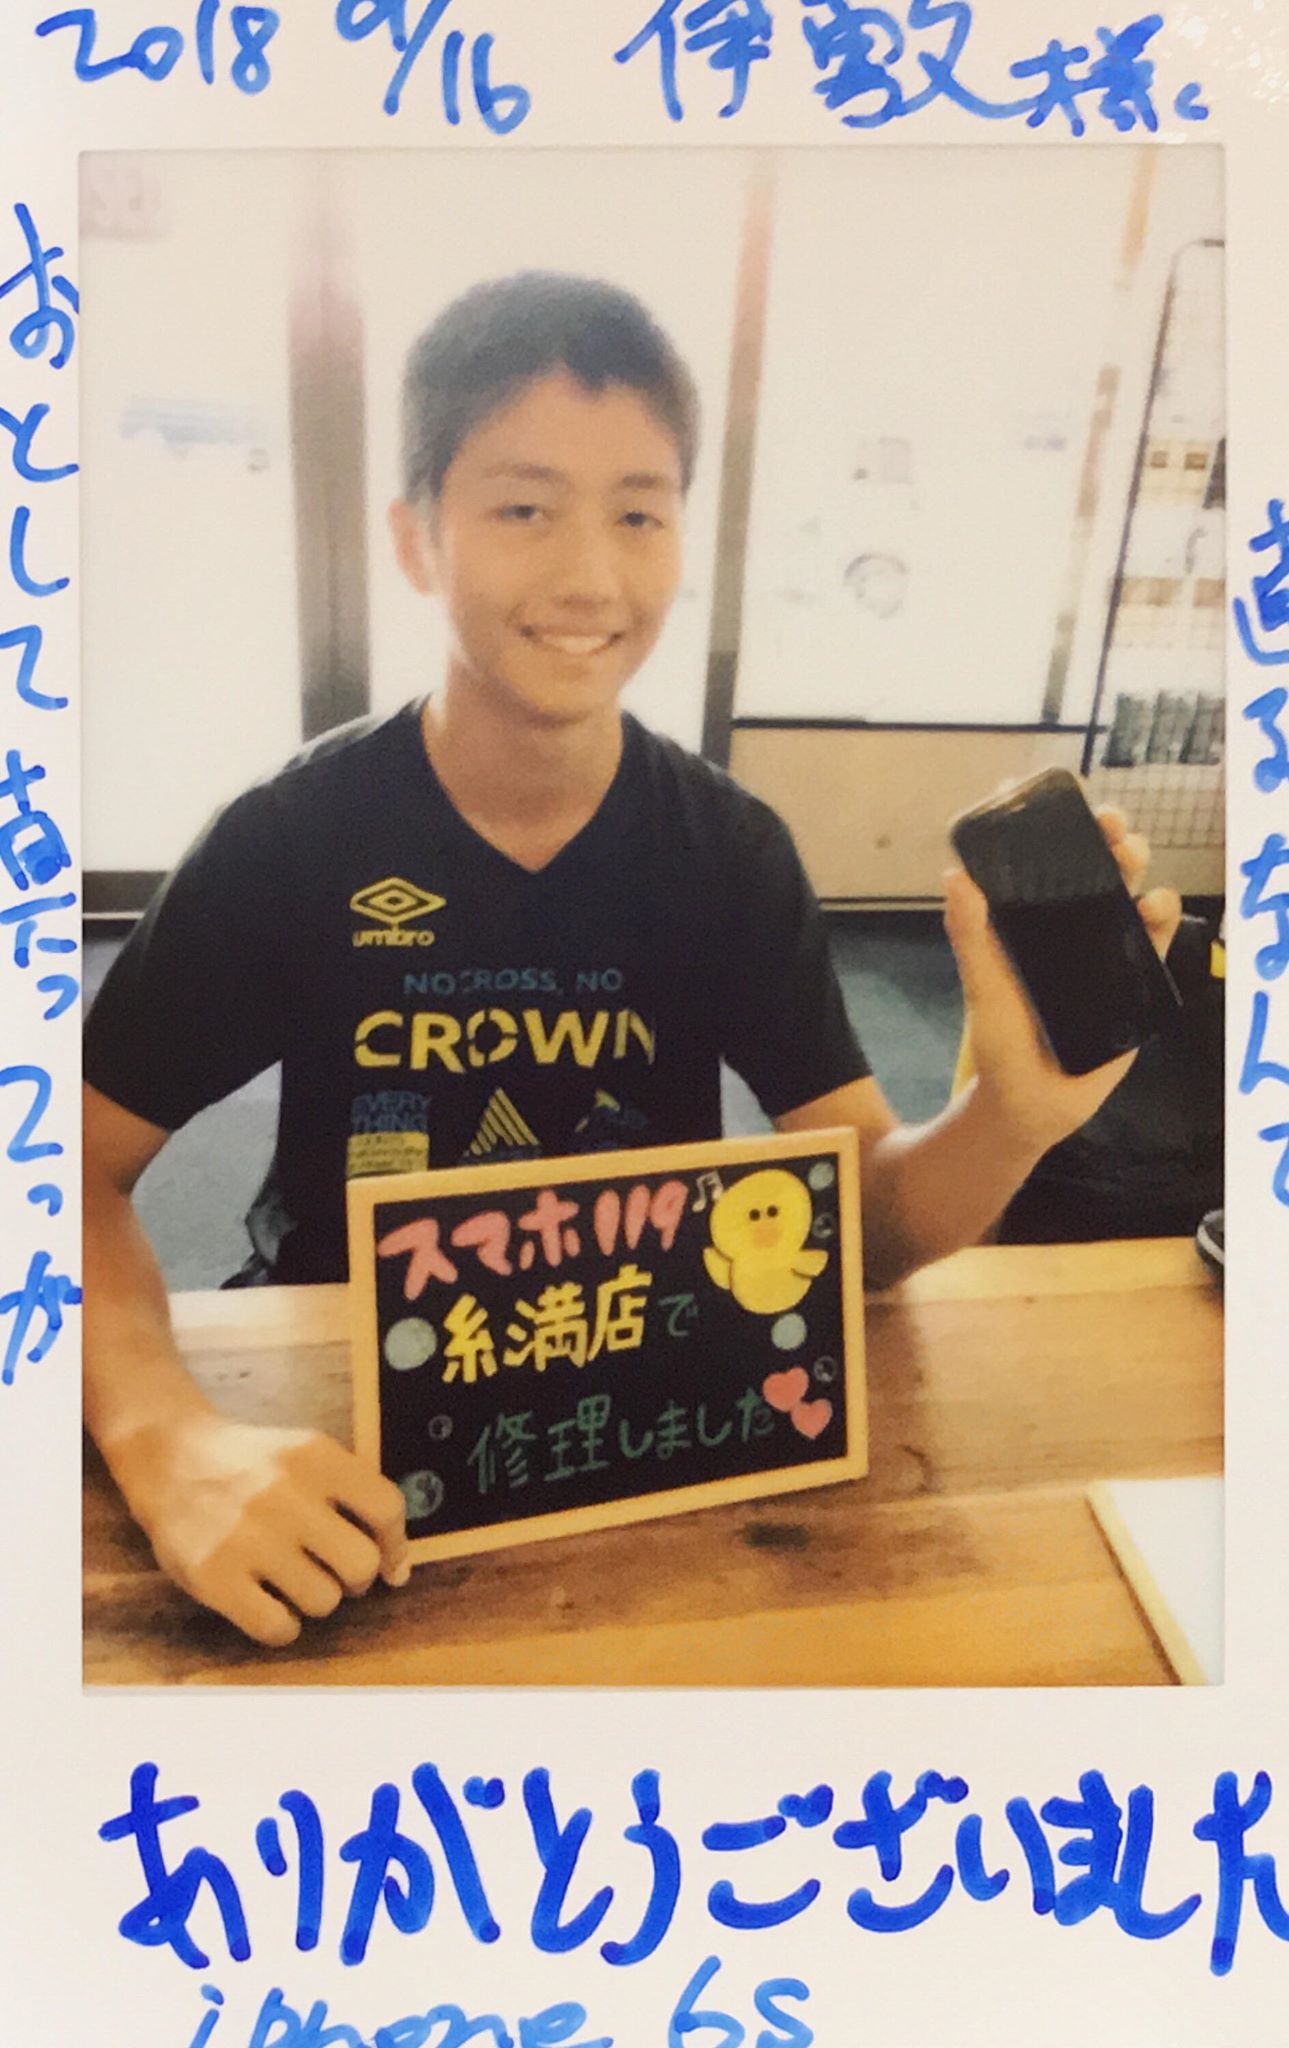 2018 9/16 伊敷様
おとして真っ二つが
直るなんて
umbro
NO CROSS, NO
CROWN
EVERY
THING
スマホ119
糸満店で
修理しました
ありがとうございました
iphone 6s